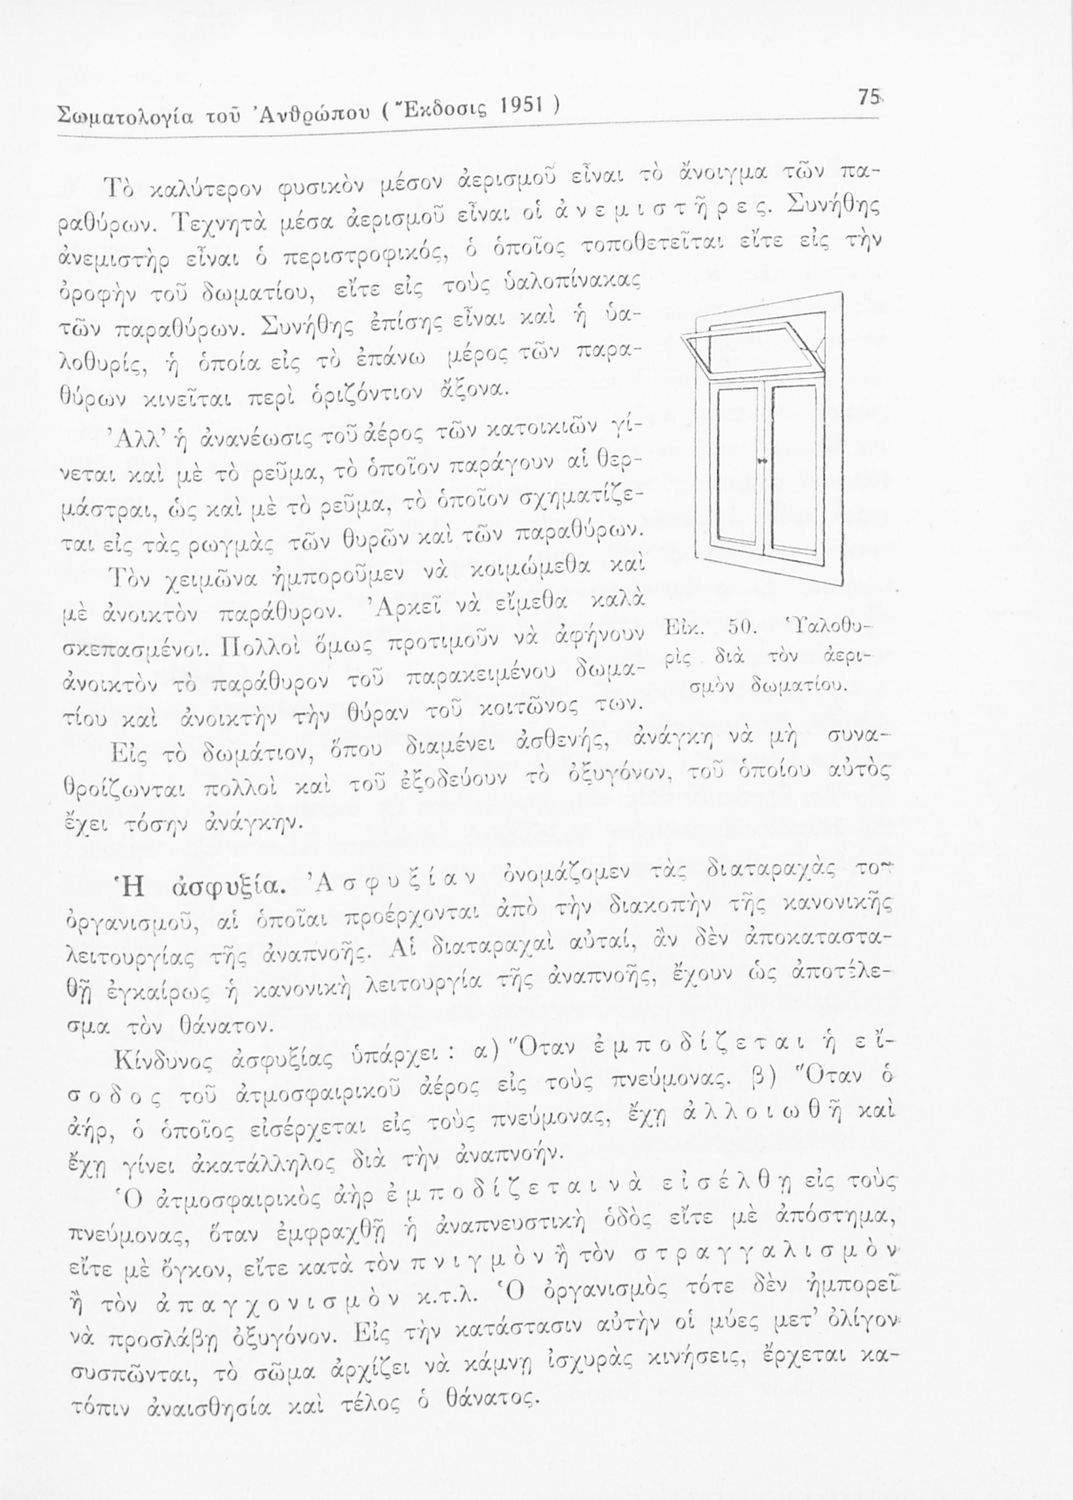 Σωματολογία τοῦ Ἀνθρώπου ( Ἔκδοσις 1951 ) 75
Τὸ καλύτερον φυσικὸν μέσον ἀερισμοῦ εἶναι τὸ ἄνοιγμα τῶν πα-
ραθύρων. Τεχνητὰ μέσα ἀερισμοῦ εἶναι οἱ ἀ ν ε μ ι σ τ ῆ ρ ε ς. Συνήθης
ἀνεμιστὴρ εἶναι ὁ περιστροφικός, ὁ ὁποῖος τοποθετεῖται εἴτε εἰς τὴν
ὀροφὴν τοῦ δωματίου, εἴτε εἰς τοὺς ὑαλοπίνακας
τῶν παραθύρων. Συνήθης ἐπίσης εἶναι καὶ ἡ ὑα-
λοθυρίς, ἡ ὁποία εἰς τὸ ἐπάνω μέρος τῶν παρα-
θύρων κινεῖται περὶ ὁριζόντιον ἄξονα.
Ἀλλ’ ἡ ἀνανέωσις τοῦ ἀέρος τῶν κατοικιῶν γί-
νεται καὶ μὲ τὸ ρεῦμα, τὸ ὁποῖον παράγουν αἱ θερ-
μάστραι, ὡς καὶ μὲ τὸ ρεῦμα, τὸ ὁποῖον σχηματίζε-
ται εἰς τὰς ρωγμὰς τῶν θυρῶν καὶ τῶν παραθύρων.
Τὸν χειμῶνα ἠμποροῦμεν νὰ κοιμώμεθα καὶ
μὲ ἀνοικτὸν παράθυρον. Ἀρκεῖ νὰ εἴμεθα καλὰ
σκεπασμένοι. Πολλοὶ ὅμως προτιμοῦν νὰ ἀφήνουν
ἀνοικτὸν τὸ παράθυρον τοῦ παρακειμένου δωμα-
τίου καὶ ἀνοικτὴν τὴν θύραν τοῦ κοιτῶνος των.
Εἰκ. 50. Ὑαλοθυ-
ρὶς διὰ τὸν ἀερι-
σμὸν δωματίου.
Εἰς τὸ δωμάτιον, ὅπου διαμένει ἀσθενής, ἀνάγκη νὰ μὴ συνα-
θροίζωνται πολλοὶ καὶ τοῦ ἐξοδεύουν τὸ ὀξυγόνον, τοῦ ὁποίου αὐτὸς
ἔχει τόσην ἀνάγκην.
Ἡ ἀσφυξία. Ἀ σ φ υ ξ ί α ν ὀνομάζομεν τὰς διαταραχὰς τοῦ
ὀργανισμοῦ, αἱ ὁποῖαι προέρχονται ἀπὸ τὴν διακοπὴν τῆς κανονικῆς
λειτουργίας τῆς ἀναπνοῆς. Αἱ διαταραχαὶ αὐταί, ἂν δὲν ἀποκαταστα-
θῇ ἐγκαίρως ἡ κανονικὴ λειτουργία τῆς ἀναπνοῆς, ἔχουν ὡς ἀποτέλε-
σμα τὸν θάνατον.
Κίνδυνος ἀσφυξίας ὑπάρχει : α) Ὅταν ἐ μ π ο δ ί ζ ε τ α ι ἡ ε ἴ-
σ ο δ ο ς τοῦ ἀτμοσφαιρικοῦ ἀέρος εἰς τοὺς πνεύμονας. β) Ὅταν ὁ
ἀήρ, ὁ ὁποῖος εἰσέρχεται εἰς τοὺς πνεύμονας, ἔχῃ ἀ λ λ ο ι ω θ ῆ καὶ
ἔχῃ γίνει ἀκατάλληλος διὰ τὴν ἀναπνοήν.
Ὁ ἀτμοσφαιρικὸς ἀὴρ ἐ μ π ο δ ί ζ ε τ α ι ν ὰ ε ἰ σ έ λ θ ῃ εἰς τοὺς
πνεύμονας, ὅταν ἐμφραχθῇ ἡ ἀναπνευστικὴ ὁδὸς εἴτε μὲ ἀπόστημα,
εἴτε μὲ ὄγκον, εἴτε κατὰ τὸν π ν ι γ μ ὸ ν ἢ τὸν σ τ ρ α γ γ α λ ι σ μ ὸ ν
ἢ τὸν ἀ π α γ χ ο ν ι σ μ ὸ ν κ.τ.λ. Ὁ ὀργανισμὸς τότε δὲν ἠμπορεῖ
νὰ προσλάβῃ ὀξυγόνον. Εἰς τὴν κατάστασιν αὐτὴν οἱ μύες μετ’ ὀλίγον
συσπῶνται, τὸ σῶμα ἀρχίζει νὰ κάμνῃ ἰσχυρὰς κινήσεις, ἔρχεται κα-
τόπιν ἀναισθησία καὶ τέλος ὁ θάνατος.